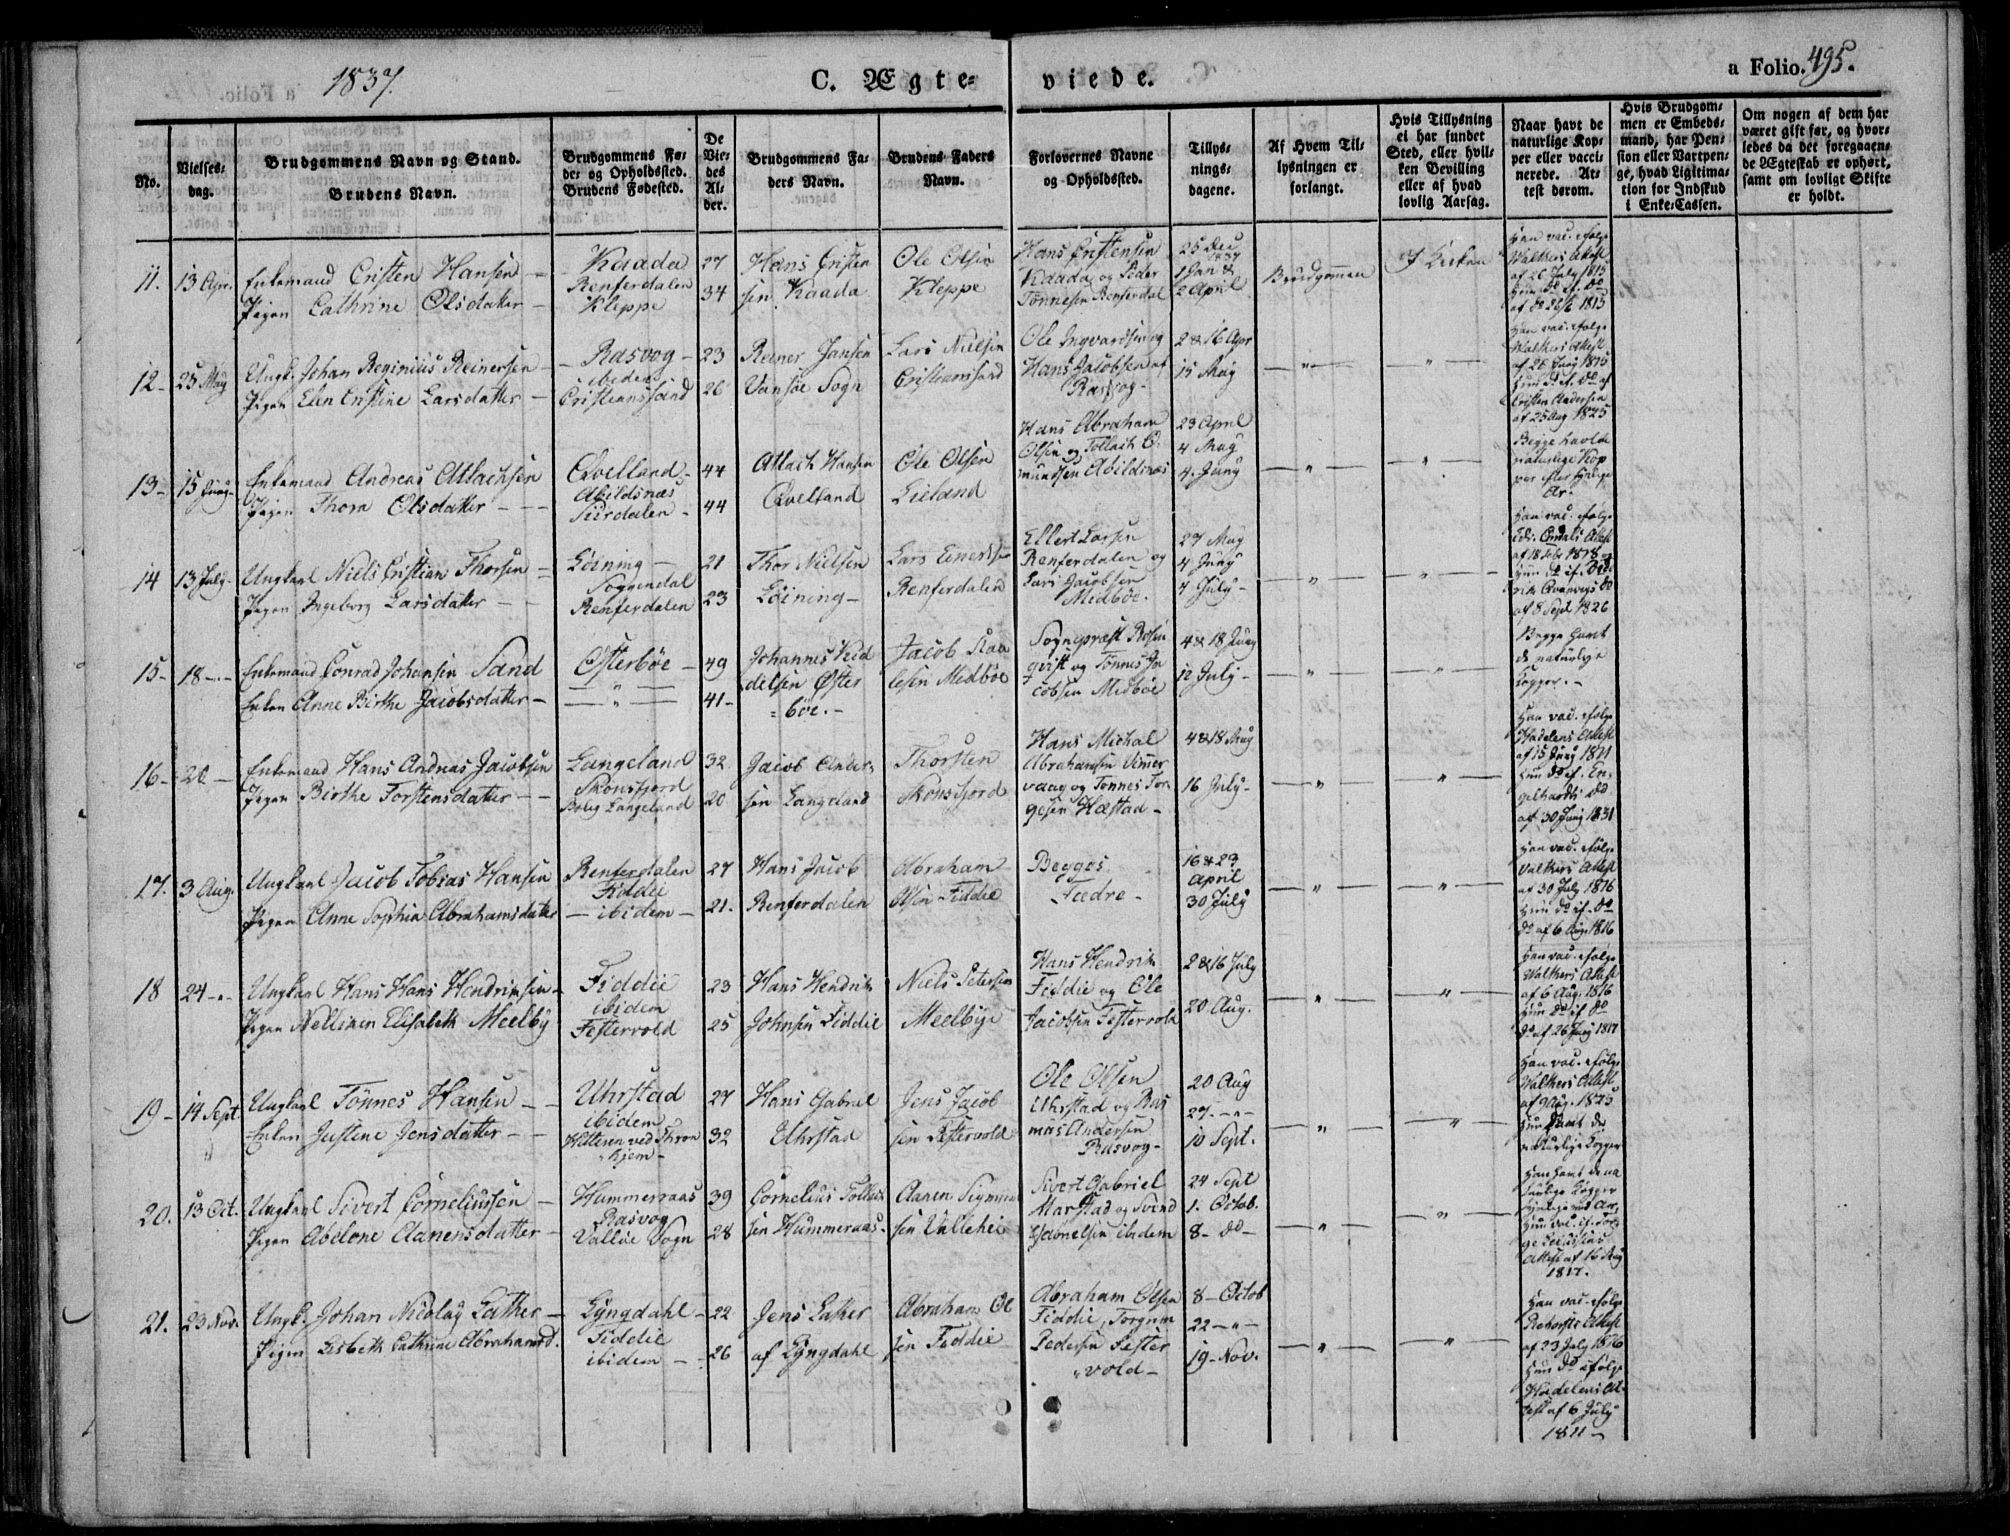 1837.
C. Ægte=
viede.
a Folio. 495.
No.
Vielses=
dag.
Brudgommens Navn og Stand.
Brudens Navn.
Brudgommens Fø=
de= og Opholdssted.
Brudens Fødested.
De
Vie=
des
Al=
der.
Brudgommens Fa=
ders Navn.
Brudens Faders
Navn.
Forlovernes Navne
og Opholdssted.
Tillys=
nings=
dagene.
Af Hvem Til=
lysningen er
forlangt.
Hvis Tillysning
ei har fundet
Sted, eller hvil=
ken Bevilling
eller af hvad
lovlig Aarsag.
Naar havt de
naturlige Kop=
per eller vacci=
nerede. At=
test derom.
Hvis Brudgom=
men er Embeds=
mand, har Pen=
sion eller Vartpen=
ge, hvad Ligitima=
tion for Indskud
i Enke=Cassen.
Om nogen af dem har
været gift før, og hvor=
ledes da det foregaaen=
de Ægteskab er ophørt,
samt om lovligt Skifte
er holdt.
11. 13 Apr.
Enkemand Cristen Hansen —
Pigen Cathrine Olsdatter —
Kaada
Renferdalen
Kleppe
27
34
Hans Cristen
sen Kaada
Ole Olsen
Kleppe
Hans Cristensen
Kaada og Peder
Tønnesen Renferdal
25 Dec
1 Jan &
2 April
Brudgommen
I Kirken
Han vac. ifølge
Walkers Attest
af 26 July 1815
12 — 25 May
Ungk. Johan Reginius Reinersen —
Pigen Elen Cristine Larsdatter —
Rasvog —
ibidem
Cristianssand
23
26
Reiner Jansen
Vansøe Sogn
Lars Nielsen
Cristianssand
Ole Ingvardsen og
Hans Jacobsen af
Rasvog —
2 & 16 Apr
15 May
Han vac. ifølge
Walkers Attest
Cristen Andersen
af 25 Aug 1825
13 — 15 Juny —
Enkemand Andreas Atlachsen
Pigen Thora Olsdatter — —
Qvelland —
Abildsnæs
Siirdalen —
44
44
Atlach Hansen
Qvelland
Ole Olsen
Lieland
Hans Abraham
Olsen og Tollach O=
mundsen Abildsnæs
23 April
4 May
4. Juny
Begge havde
naturlige Kop
per efter sigende
Ar.
14 13 July —
Ungkarl Niels Cristian Thorsen —
Pigen Ingeborg Larsdatter — —
Løining —
Soggendal
Renferdalen
21
23
Thor Nielsen
Løining —
Lars Einertsen
Renferdalen
Ellert Larsen
Renferdalen og
Lars Jacobsen
Medbøe.
27 May
4 Juny
4 July —
Han vac. ifølge
af 8 Sept 1826
15 — 18 —
Enkemand Conrad Johansen Sand
Enken Anne Birthe Jacobsdatter —
Østerbøe —
— " —
49
41 —
Johannes Kid
delsen Øster
= bøe. —
Jacob Aaa
lesen Medbøe
Sognepræst Rosen
qvist og Tønnes Ja
cobsen Medbøe
4 & 18 Juny
12 July —
Begge havt
de naturlige
Kopper. —
16 — 20 —
Enkemand Hans Andreas Jacobsen
Pigen Birthe Torstensdatter — —
Langeland
Skonsfjord
Bolig Langeland
32
20
Jacob Ander=
sen Langeland
Thorsten
Skonsfjord
Hans Michal
Abrahamsen Ummer
vaag og Tønnes Tor
gesen Hæstad —
4 & 18 May
16 July —
Han vac. ifølge
Wadelens Attest
af 15 Juny 1811
Hun do if. En=
gelhardts dd
af 30 Juny 1831
17. 3 Aug.
Ungkarl Jacob Tobias Hansen
Pigen Anne Sophia Abrahamsdatter
Renferdalen
Fiddie
— ibidem —
27
21.
Hans Jacob
Renferdalen
Abraham
Olsen Fiddie
Begges
Fædre —
16 & 23
April
30 July
Han vac. ifølge
Valkers Attest
af 30 July 1816
Hun do if. do
do af 6 Aug 1816
18 24 —
Ungkarl Hans Hans Hendriksen —
Pigen Nelliken Elisabeth Meelby
Fiddie
ibidem
Festervold
23
25
Hans Hendrik
Johnsen Fiddie
Niels Petersen
Meelbye
Hans Hendrik
Fiddie og Ole
Jacobsen Festervold
2 & 16 July
20 Aug.
Han vac. ifølge
Walkers Attest
af 6 Aug. 1816
Hun do if do
do af 26 Juny 1817
19 — 14 Sept
Ungkarl Tønnes Hansen — —
Enken Justene Jensdatter — —
Uhrstad
ibidem
Hitteren ved Thron
hjem —
27
32
Hans Gabriel
Uhrstad
Jens Jacob
sen Festervold
Ole Olsen
Uhrstad og Ras
mus Andersen
Rasvog —
20 Aug
27. — " —
10 Sept.
Han vac. ifølge
Walkers Attest
af 9 Aug. 1825
Hun havt de
naturlige Kopper
20. 13 Oct.
Ungkarl Sivert Corneliussen —
Pigen Abelone Aanensdatter —
Hummeraas
Rasvog
Valløe Sogn
39
28
Cornelius Tollak
sen Hummeraas —
Aanen Sigmund
sen Vallehei
Sivert Gabriel
Marstad og Svend
Gabrielsen ibidem
24 Sept
1. Octob.
8 — do —
Han havt de na
turlige Kopper
Attest af 16 Aug
1817.
21. 23 Nov.
Ungk. Johan Nicolay Lather —
Pigen Lisbeth Cathrine Abrahamsd.
Lyngdahl —
Fiddie
ibidem — —
22
26
Jens Lather
af Lyngdahl
Abraham Ol
sen Fiddie
Abraham Olsen
Fiddie, Torgrim
Pedersen Fester
vold —
8 — Octob
22 — " —
19 — Nov.
Han vac. ifølge
Rehorsts Attest
af 23 July 1816
Hun do ifølge
Wadelens At=
test af 6 July
1811 —